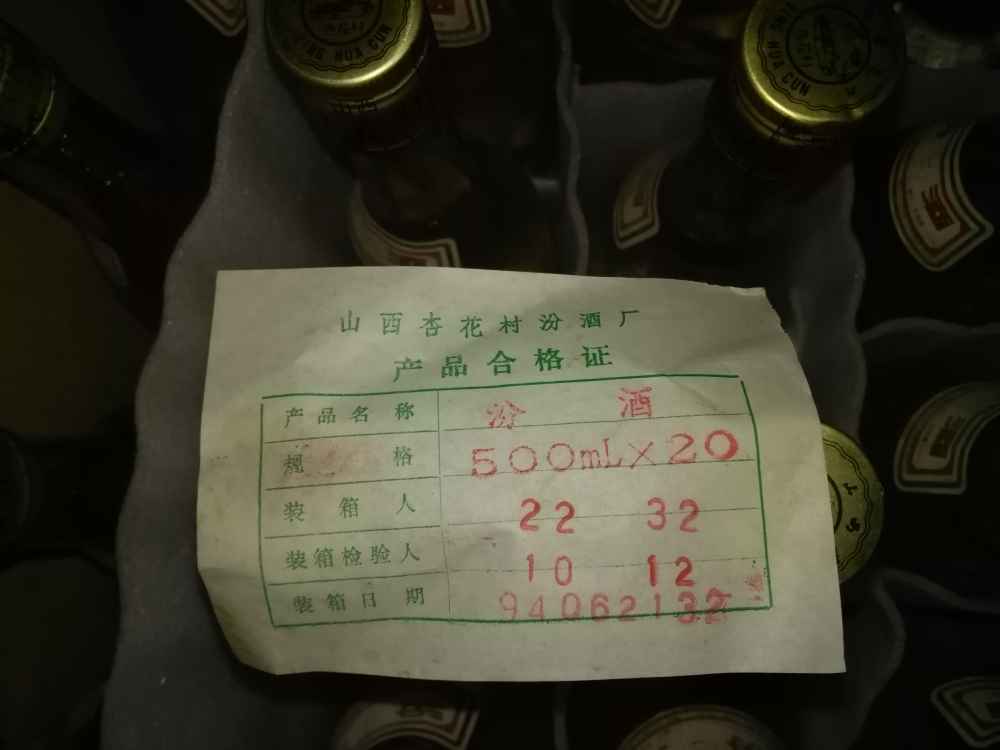 HUA CUN
HUA CUN
山西杏花村汾酒厂
产品合格证
产品名称 汾 酒
规格 500mL×20
装箱人 22 32
装箱检验人 10 12
装箱日期 94062132